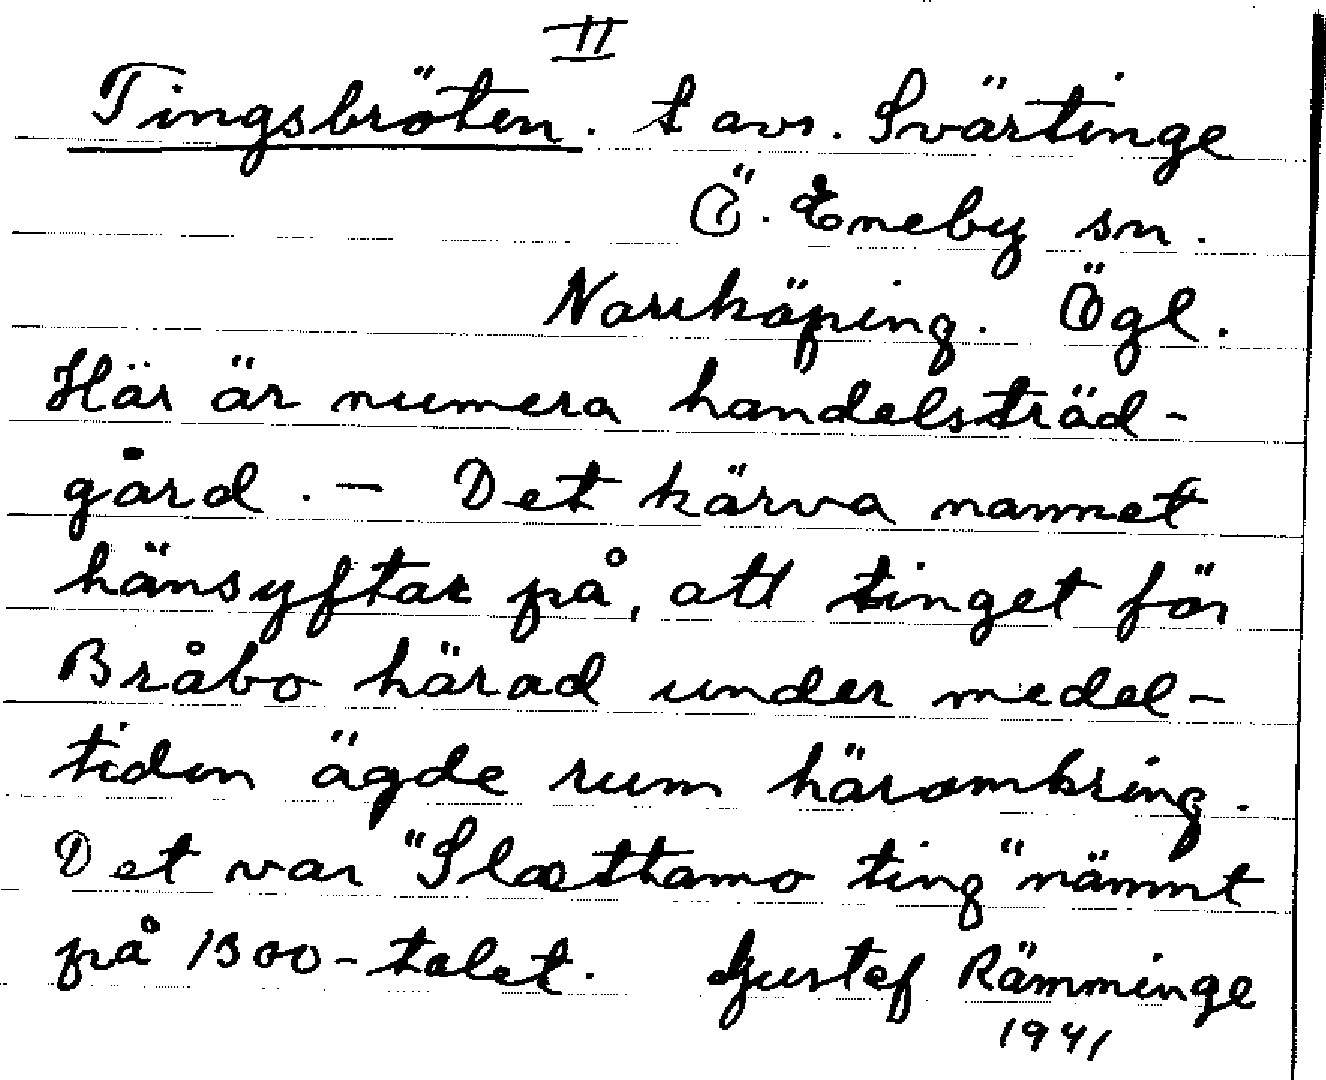 II
Tingsbröten. t avs. Svärtinge
Ö. Eneby sn.
Norrköping. Ögl.
Här är numera handelsträd-
gård. - Det kärva namnet
hänsyftar på, att tinget för
Bråbo härad under medel-
tiden ägde rum häromkring.
Det var "Slættamo ting" nämnt
på 1300-talet. Gustef Rämminge
1941